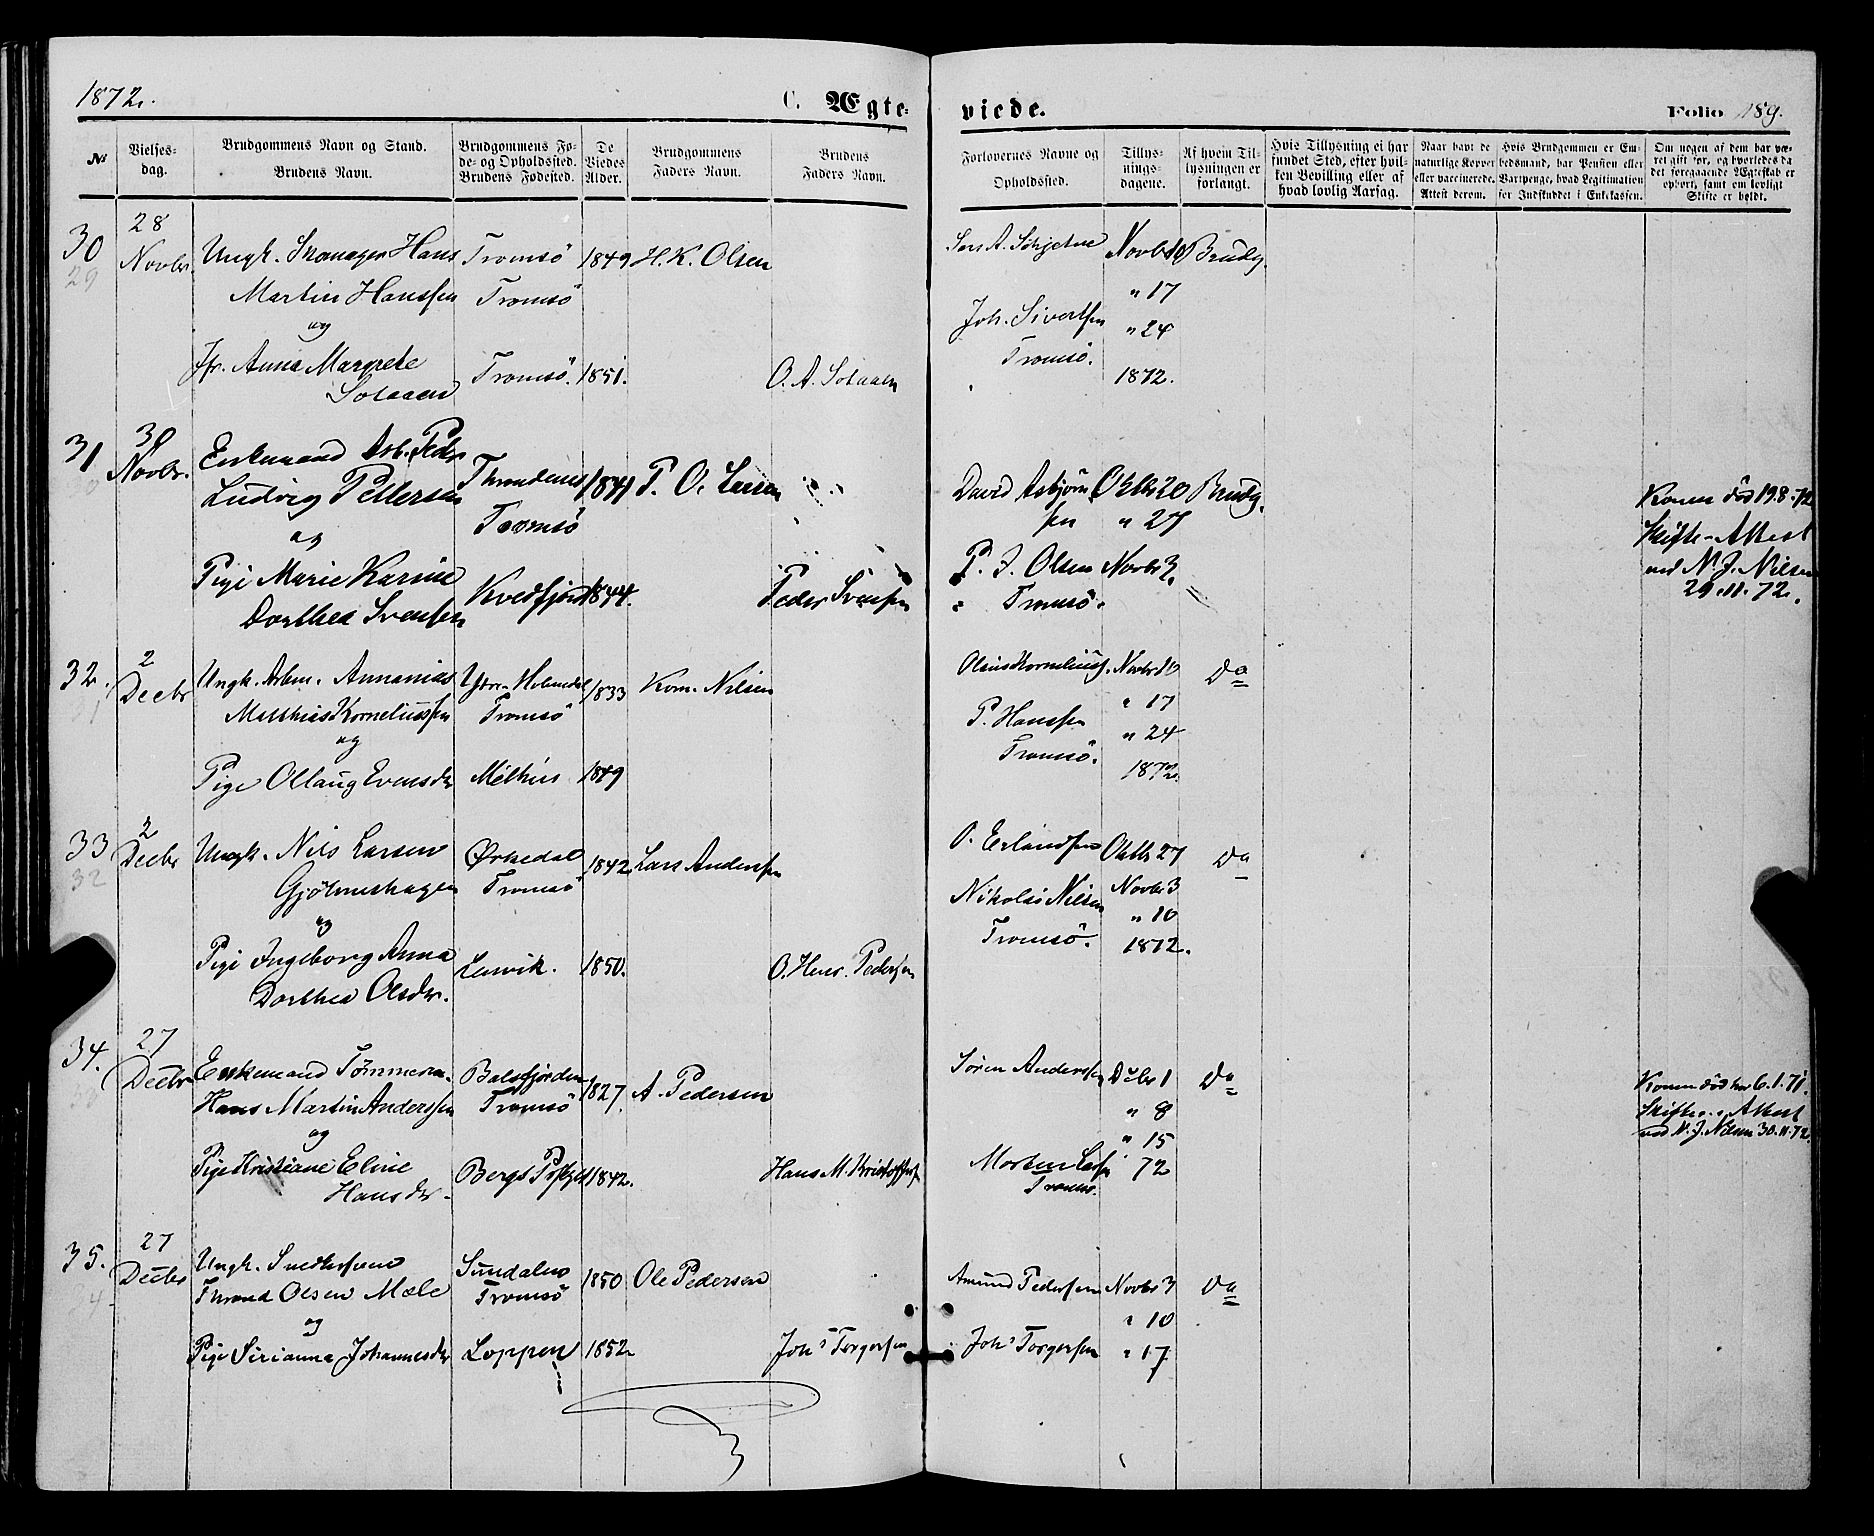 1872.
C. Ægte-
viede.
Folio 189.
№
Vielses-
dag.
Brudgommens Navn og Stand.
Brudens Navn.
Brudgommens Fø-
de- og Opholdssted.
Brudens Fødested.
De
Viedes
Alder.
Brudgommens
Faders Navn.
Brudens
Faders Navn.
Forlovernes Navne og
Opholdssted.
Tillys-
nings-
dagene.
Af hvem Til-
lysningen er
forlangt.
Hvis Tillysning ei har
fundet Sted, efter hvil-
ken Bevilling eller af
hvad lovlig Aarsag.
Naar havt de
naturlige Kopper
eller vaccinerede.
Attest derom.
Hvis Brudgommen er Em-
bedsmand, har Pension eller
Vartpenge, hvad Legitimation
for Indskuddet i Enkekassen.
Om nogen af dem har væ-
ret gift før, og hvorledes da
det foregaaende Ægteskab er
ophørt, samt om lovligt
Skifte er holdt.
30
29
28
Novbr.
Ungk. Skomager Hans
Martin Hanssen
og
Jfr. Anna Margrete
Solaaen
Tromsö
Tromsö
Tromsö.
1849
1851.
H. K. Olsen
O. A. Solaaen
Lars A.
Joh. Sivertsen
Tromsö.
Novbr 10
" 17
" 24
1872.
Brudg.
31
30
Novbr.
Enkemand Arb. Peder
Ludvig Pettersen
og
Pige Marie Karine
Dorthea Svensen
Throndenes
Tromsö
Kvedfjord
1841
1844.
P. O. Larsen
Peder Svensen
David Asbjörn
sen
P. J. Olsen
Tromsö.
Oktbr 20
" 27
Novbr 3.
Brudg.
Konen död 19.8.72
Skifte-Attest
ved N. J. Nilsen
29.11.72.
32.
31
2
Decbr
Ungk. Arbm. Annanias
Matthias Korneliussen
og
Pige Ollaug Evensdr
Tromsö
Melhus
1833
1849
Korn. Nilsen
Olaus Korneliuss.
P. Hanssen
Tromsö.
Novbr 10
" 17
" 24
1872.
Do
33
32
2
Decbr
Ungk. Nils Larsen
Gjölmeshagen
og
Pige Ingeborg Anna
Dorthea Olsdr.
Ørkedal
Tromsö
Lenvik.
1842
1850.
Lars Andersen
O. Hens. Pedersen
O. Erlandsen
Nikolai Nilsen
Tromsö.
Oktbr 27
Novbr 3
" 10
1872.
Do
34.
27
Decbr
Enkemand Tömmerm.
Hans Martin Anderssen
og
Pige Kristiane Eline
Hansdr.
Balsfjorden
Tromsö
Bergs Præstgd
1827.
1842.
A. Pedersen
Hans M. Kristoffersen
Sören Anderssen
Morten Larsen
Tromsö.
Decbr 1
" 8
" 15
72
Do
Konen död her 6.1.71.
Skifte-Attest
ved N. J. Nilsen 30.11.72.
35.
34
27
Decbr
Ungk. Snedkersvend
Thrond Olsen Mæle
og
Pige Sirianna Johannesdr
Sundalen
Tromsö
Loppen
1850
1852
Ole Pedersen
Johs Torgersen
Amund Pedersen
Johs Torgersen
Novbr 3
" 10
" 17
Do